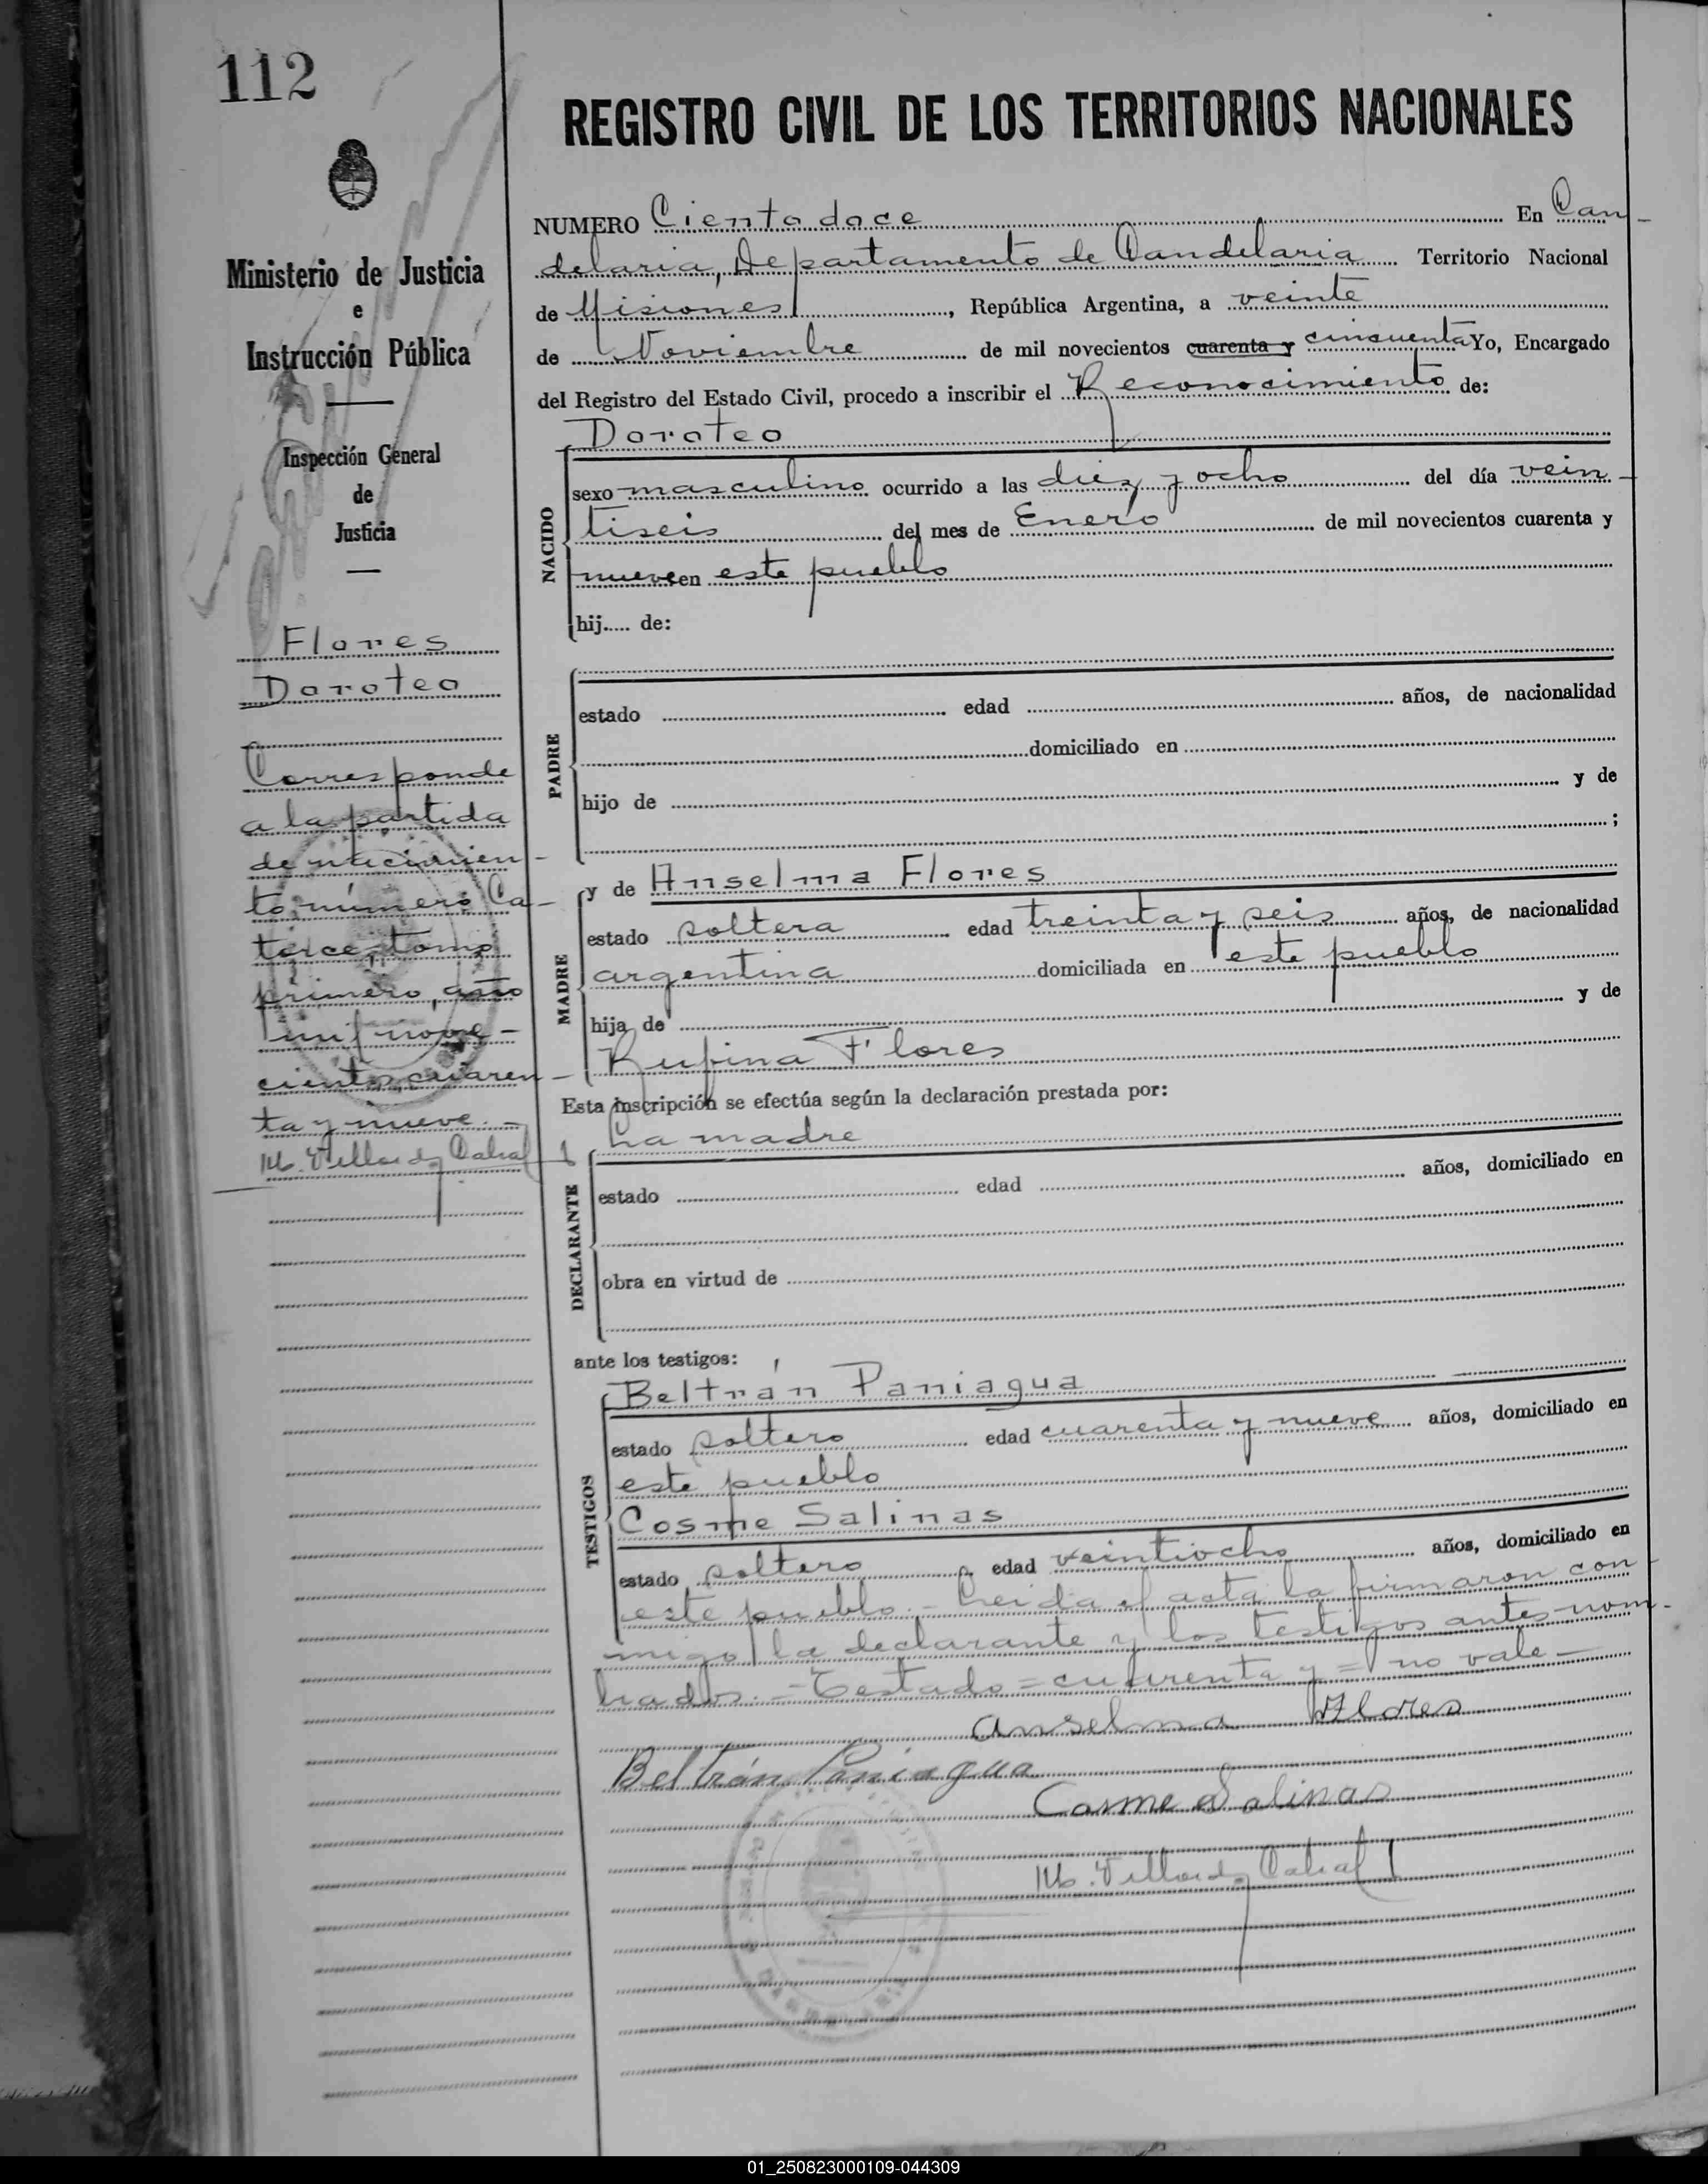 112
REGISTRO CIVIL DE LOS TERRITORIOS NACIONALES
Ministerio de Justicia
e
Instrucción Pública
Inspección General
de
Justicia
Flores
Doroteo
Corresponde
a la partida
de nacimien-
to número Ca-
torce, tomo
primero, año
mil nove-
cientos cuaren-
ta y nueve.-
NUMERO Ciento doce En Can-
delaria, Departamento de Candelaria Territorio Nacional
de Misiones, República Argentina, a veinte
de Noviembre de mil novecientos cuarenta y cincuenta Yo, Encargado
del Registro del Estado Civil, procedo a inscribir el Reconocimiento de:
Doroteo
NACIDO
sexo masculino ocurrido a las diez y ocho del día vein-
tiseis del mes de Enero de mil novecientos cuarenta y
nueve en este pueblo
hij..... de:
PADRE
estado edad años, de nacionalidad
domiciliado en
hijo de y de
;
MADRE
y de Anselma Flores
estado soltera edad treinta y seis años, de nacionalidad
argentina domiciliada en este pueblo
hija de y de
Rufina Flores
Esta inscripción se efectúa según la declaración prestada por:
La madre
DECLARANTE
estado edad años, domiciliado en
obra en virtud de
ante los testigos:
TESTIGOS
Beltrán Paniagua
estado soltero edad cuarenta y nueve años, domiciliado en
este pueblo
Cosme Salinas
estado soltero edad veintiocho años, domiciliado en
este pueblo.- Leida el acta la firmaron con-
migo la declarante y los testigos antes nom-
brados.- Testado = cuarenta y = no vale-
Anselma Flores
Beltrán Paniagua
Cosme Salinas
01_250823000109-044309